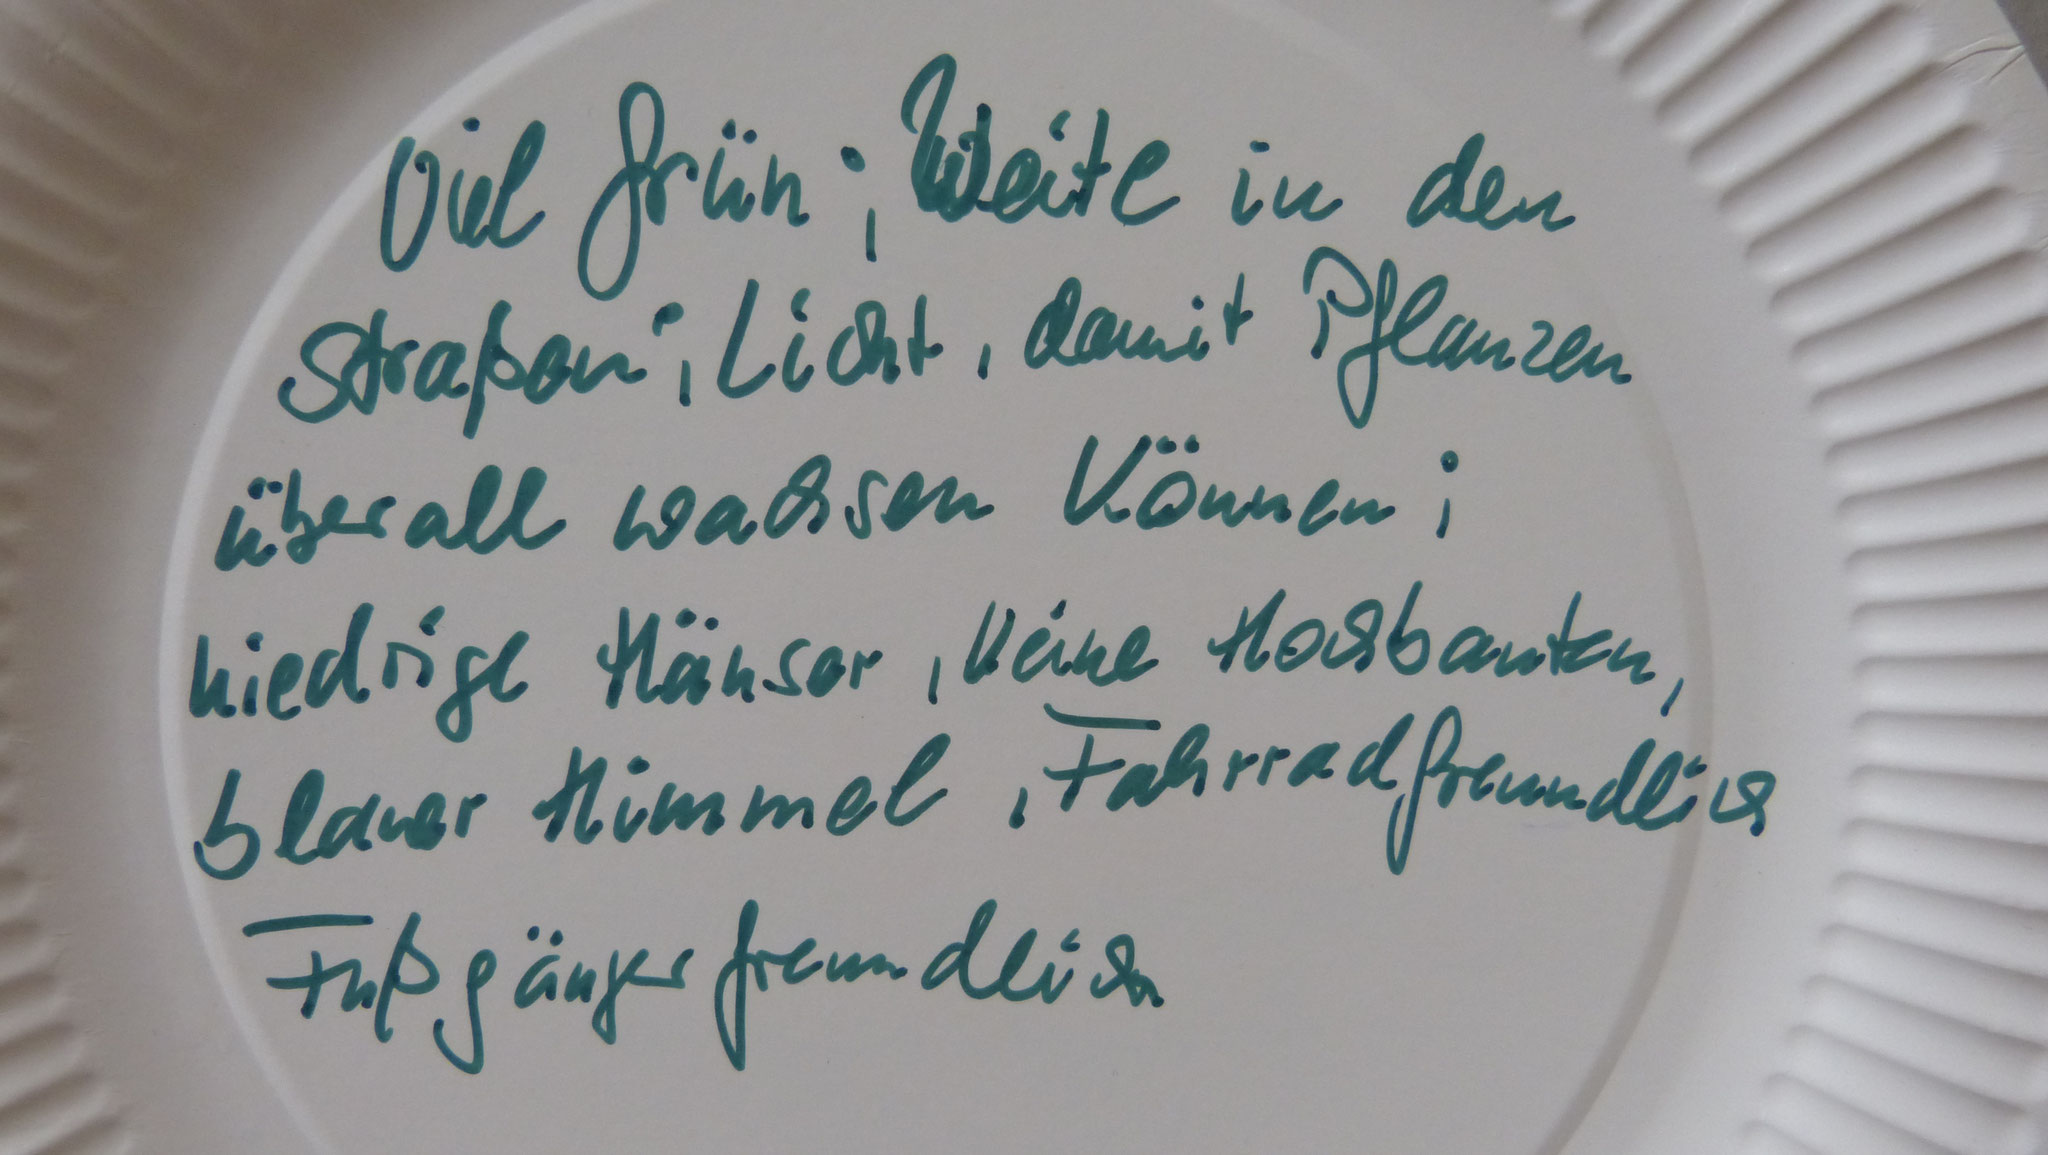 Viel grün; Weite in den
Straßen; Licht, damit Pflanzen
überall wachsen können;
niedrige Häuser, keine Hochbauten,
blauer Himmel, Fahrradfreundlich
Fußgängerfreundlich